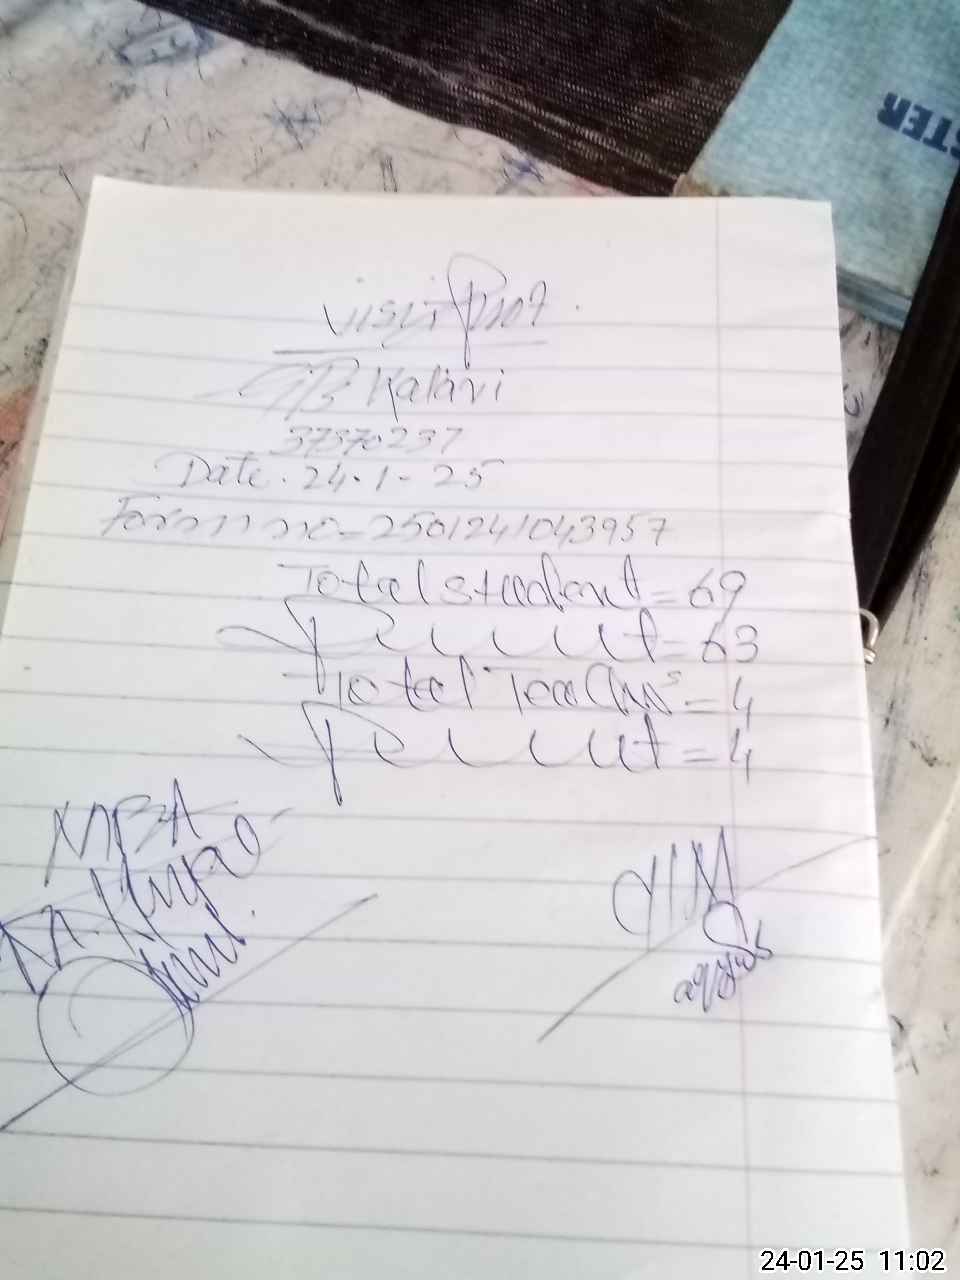 STER
visit Proof.
GB Kalari
37370237
Date. 24.1-25
Form no-2501241043957
Total student=69
Present=63
Total Teachers=4
Present=4
MBA
HM
24-01-25 11:02